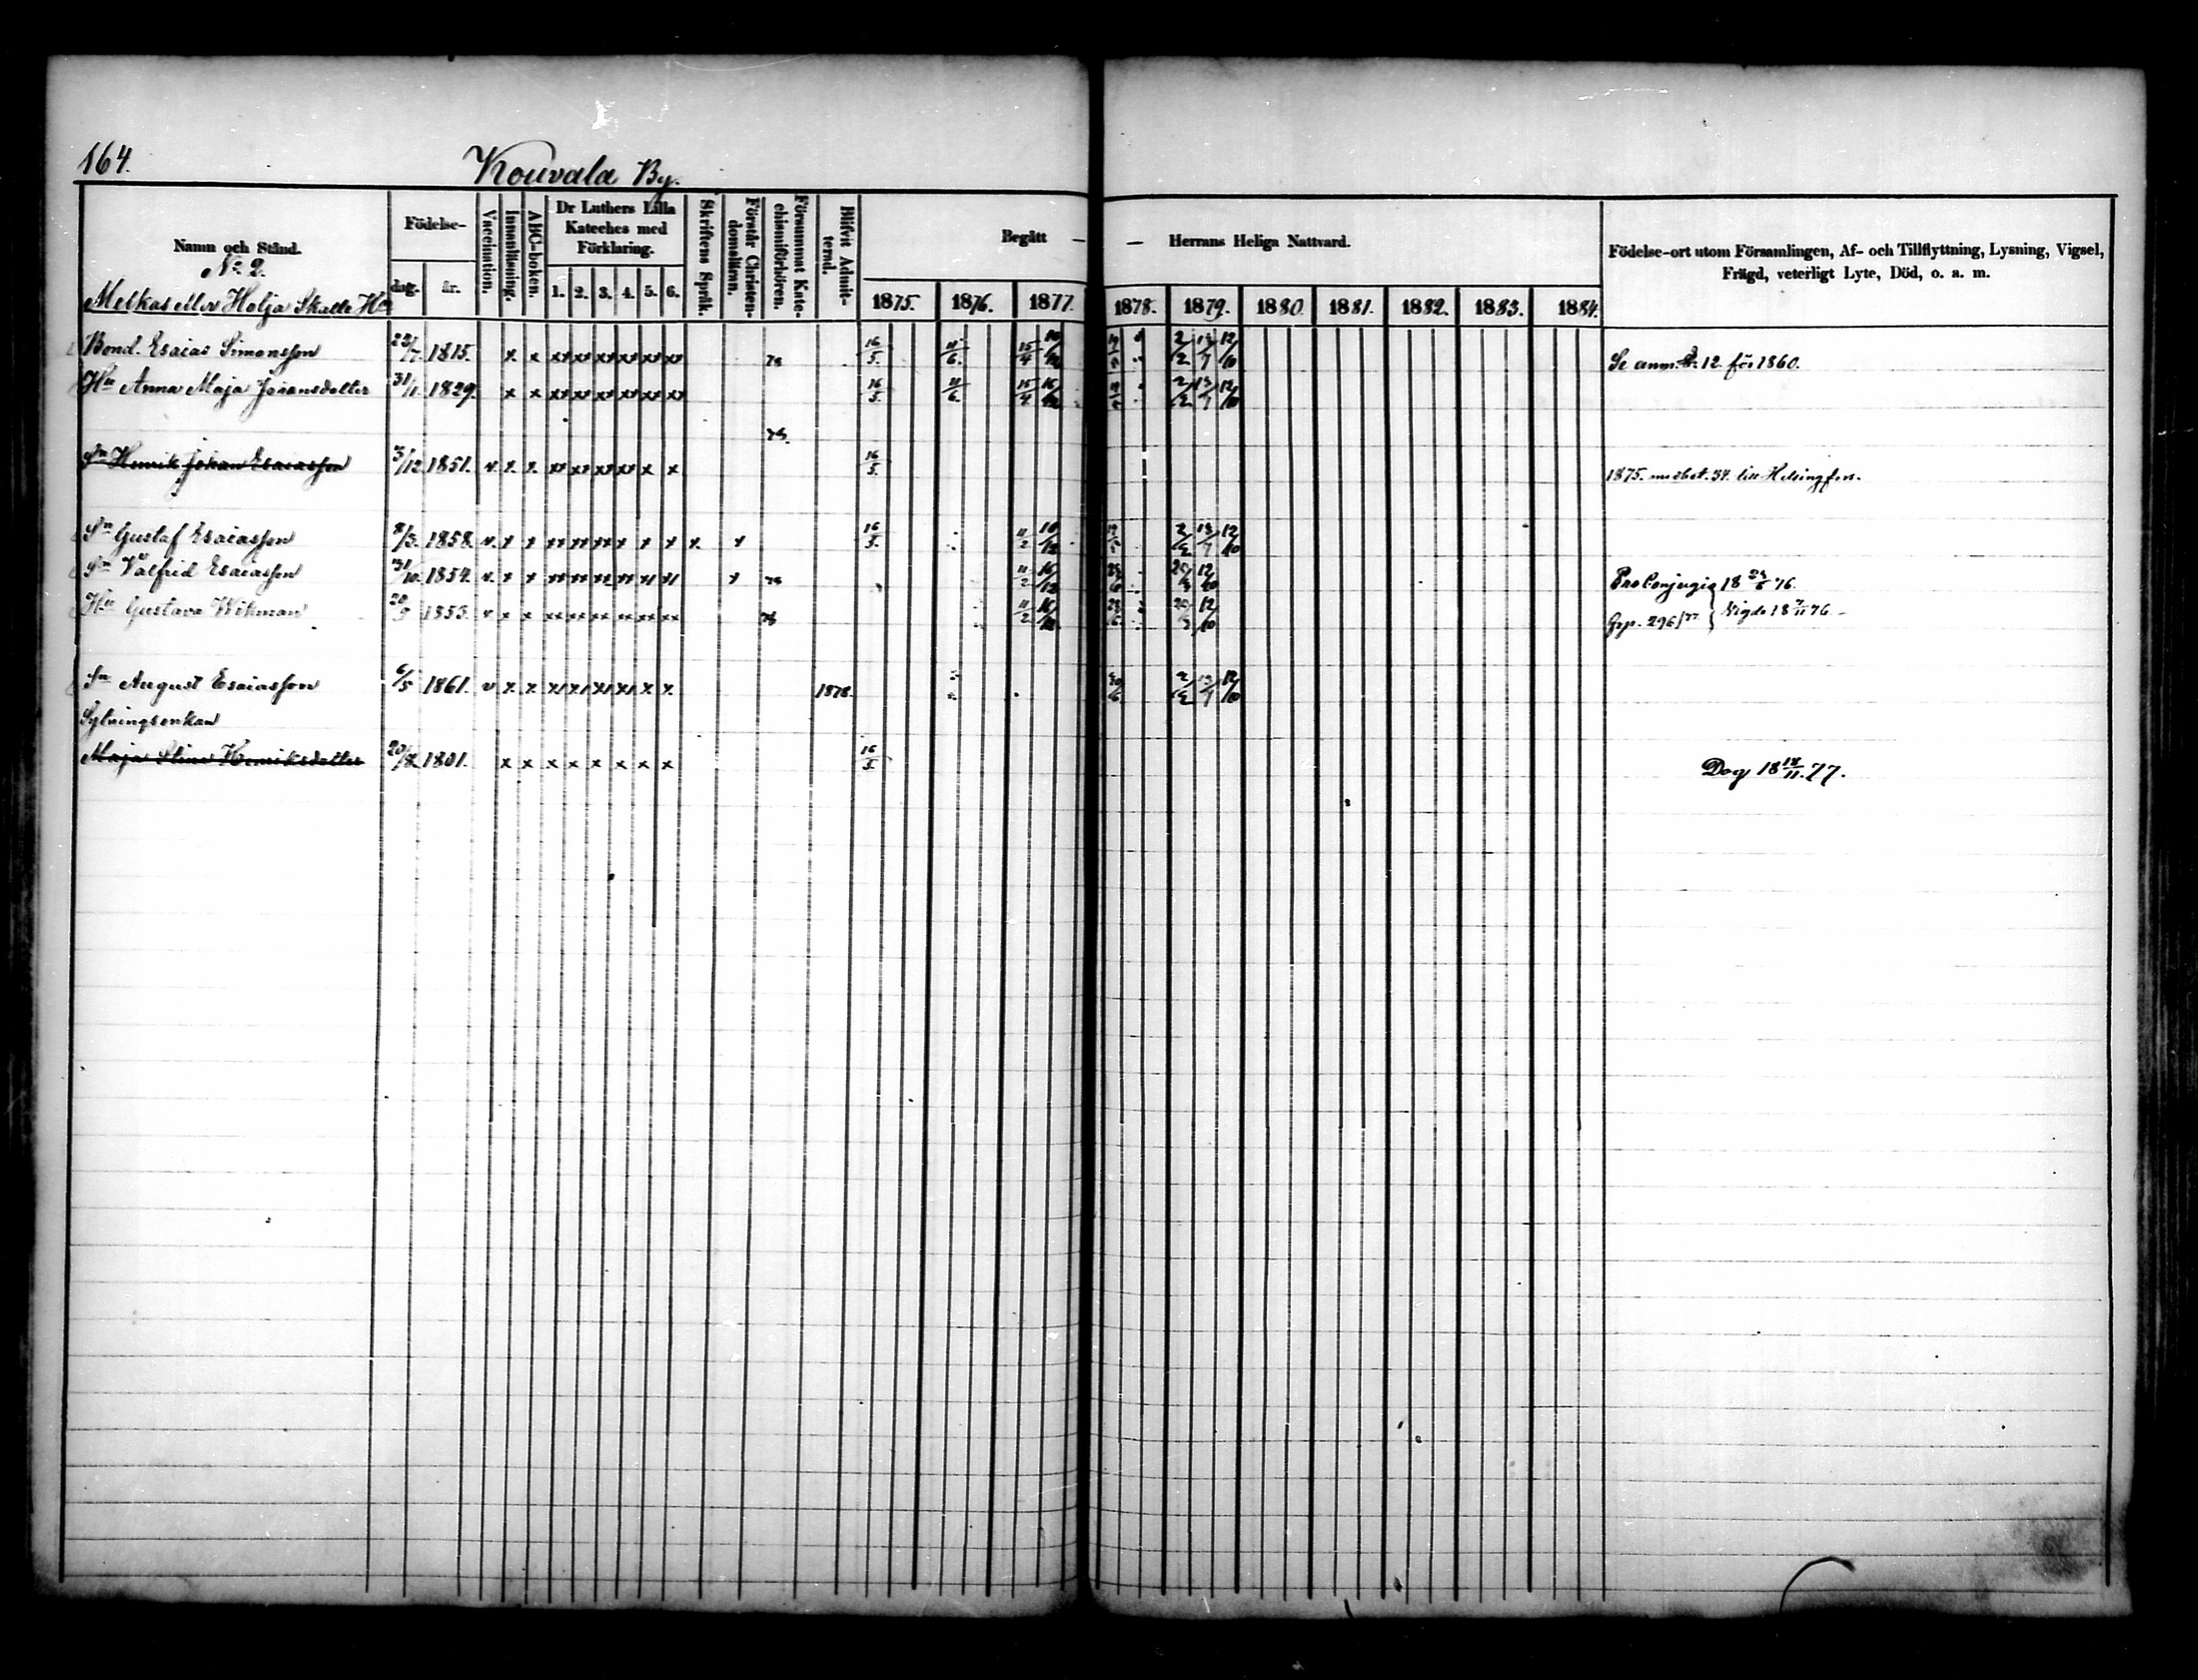 164.
Kouvala By.
Namn och Stånd.
No 2.
Födelse-
dag. år.
Vaccination.
Innanläsning.
ABC-boken.
Dr Luthers Lilla Kateches med Förklaring.
1. 2. 3. 4. 5. 6.
Skriftens Språk.
Förstår Christendomsläran.
Försummat Katechismiförhören.
Blifvit Admitterad.
Begått — — Herrans Heliga Nattvard.
1875. 1876. 1877. 1878. 1879. 1880. 1881. 1882. 1883. 1884.
Födelse-ort utom Församlingen, Af- och Tillflyttning, Lysning, Vigsel,
Frägd, veterligt Lyte, Död, o. a. m.
Melkas eller Holja Skatte
Bond. Esaias Simonsson 22/7. 1815. x x xx xx xx xx xx xx 16/5. 11/6. 15/4 2/2 13/7 12/10 Se anm. 12. för 1860.
Hu Anna Maja Johansdotter 31/1. 1829. x x xx xx xx xx xx xx 16/5. 11/6. 15/4 16/12 2/2 13/7 12/10
Sn Henrik Johan Esaiasson 3/12 1851. v. x. x. xx xx xx xx x x 16/5. 1875. med bet. 54. till Helsingfors.
Sn Gustaf Esaiasson 8/3. 1858. v. x x xx xx xx x x x x. x 16/5. 11/2 2/2 13/7 12/10
Sn Valfrid Esaiasson 31/10. 1854. v. x x xx xx xx xx xx xx x 11/2 16/12 12/10 Pro Conjugio 18 76.
Hu Gustava Wikman 1853. v x x xx xx xx xx xx xx 11/2 16/12 12/10 Vigde 18 7/11 76 -
Sn August Esaiasson 6/5 1861. v x x x x x x x x 1878. 2/2 13/7 12/10
Sytningsenkan
Maja Stina Henriksdotter 20/8. 1801. x x x x x x x x 16/5. Dog 18 18/11. 77.